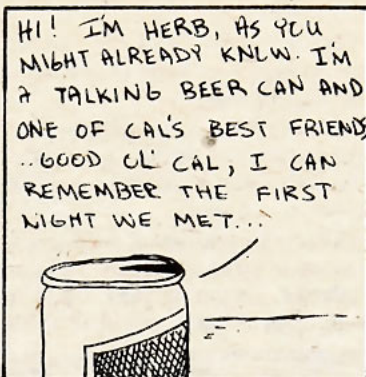 HI! I'M HERB, AS YOU
MIGHT ALREADY KNOW. I'M
A TALKING BEER CAN AND
ONE OF CAL'S BEST FRIENDS
..GOOD OL' CAL, I CAN
REMEMBER THE FIRST
NIGHT WE MET...